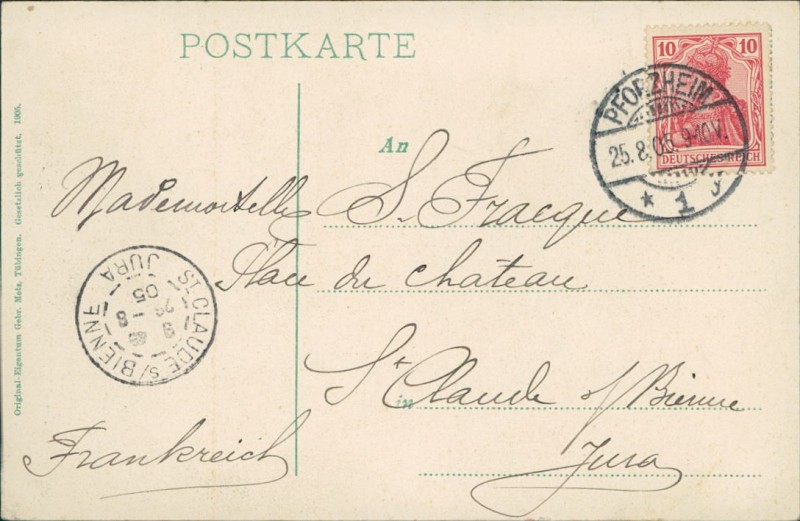 POSTKARTE
10 10
DEUTSCHES REICH
PFORZHEIM
25.8.05. 9-10V.
* 1
An
Mademoiselle S. Fracque
Place du chateau
in
St Claude s/ Bienne
Jura
Frankreich
ST CLAUDE S/BIENNE
JURA
8
05
Original-Eigentum Gebr. Metz, Tübingen. Gesetzlich geschützt. 1905.